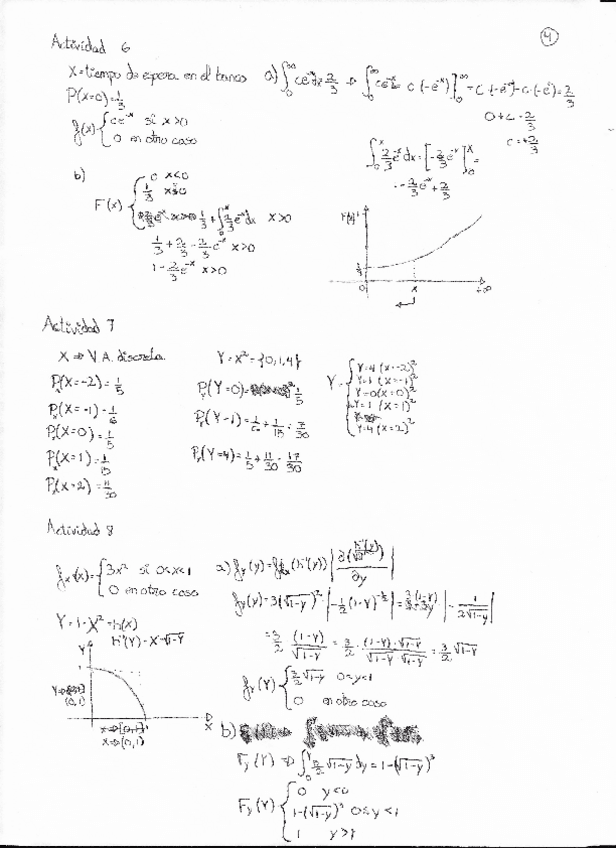 4
Actividad 6
X=tiempo de espera en el banco
P(X=0)=1/3
f(x) { ce^-x si x>0
0 en otro caso
a) ∫₀^∞ ce^-x dx = 2/3 ⇒ ∫₀^∞ ce^-x = c (-e^-x)]₀^∞ = c (-e^-∞) - c (-e^0) = 2/3
0 + c = 2/3
c = 2/3
∫₀^x 2/3 e^-x dx = [-2/3 e^-x]₀^x =
= -2/3 e^-x + 2/3
b)
F(x) { 0 x<0
1/3 x=0
1/3 + ∫₀^x 2/3 e^-x dx x>0
1/3 + 2/3 - 2/3 e^-x x>0
1 - 2/3 e^-x x>0
F(x)
1/3
0 x +∞
Actividad 7
X ⇒ V.A. discreta
Pₓ(X=-2) = 1/5
Pₓ(X=-1) = 1/6
Pₓ(X=0) = 1/5
Pₓ(X=1) = 1/15
Pₓ(X=2) = 11/30
Y = X² = {0,1,4}
Pᵧ(Y=0) = 1/5
Pᵧ(Y=1) = 1/6 + 1/15 = 7/30
Pᵧ(Y=4) = 1/5 + 11/30 = 17/30
Y = { Y=4 (x=-2)²
Y=1 (x=-1)²
Y=0 (x=0)²
Y=1 (x=1)²
Y=4 (x=2)²
Actividad 8
fₓ(x) = { 3x² si 0<x<1
0 en otro caso
Y = 1-X² = h(X)
h⁻¹(Y) = X = √1-Y
Y
1
(0,1)
X
X ⇒ (0,1)
a) fᵧ(y) = fₓ(h⁻¹(y)) | ∂(h⁻¹(y)) / ∂y |
fᵧ(y) = 3(√1-y)² · | -1/2 (1-y)^-1/2 | = 3(1-y) | -1/(2√1-y) |
= 3/2 (1-y)/√1-y = 3/2 · (1-y)·√1-y / √1-y √1-y = 3/2 √1-y
fᵧ(Y) { 3/2 √1-y 0<y<1
0 en otro caso
b)
Fᵧ(Y) ⇒ ∫₀^y 3/2 √1-y dy = 1-(√1-y)³
Fᵧ(Y) { 0 y<0
1-(√1-y)³ 0≤y<1
1 y≥1